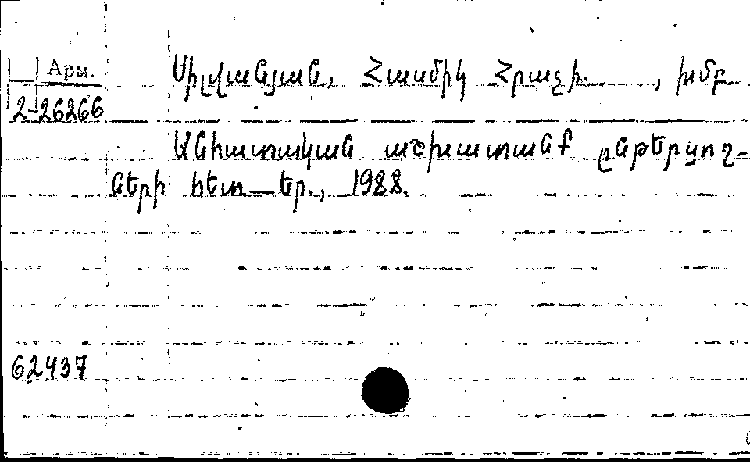 Арм.
2-26266
Սիլվանյան, Հասմիկ Հրաչի. , խմբ
Անհատական աշխատանք ընթերցող-
ների հետ.— Եր., 1988.
62437